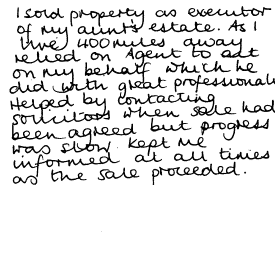 I sold property as executor
of my aunt's estate. As I
live 400 miles away
relied on Agent to act
on my behalf which he
did with great professional
Helped by contacting
solicitors when sale had
been agreed but progress
was slow. Kept me
informed at all times
as the sale proceeded.